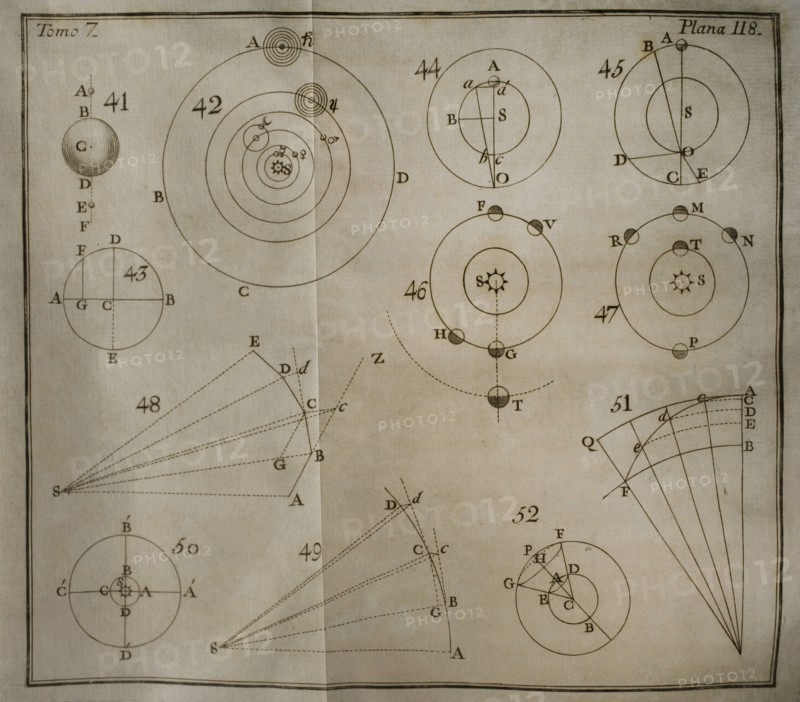 Tomo 7.
Plana 118.
41
A
B
C
D
E
F
42
A ♄
♃
☾
♂
☿ ♀
S
B
C
D
43
D
F
A G C B
E
44
A
a d
B S
b c
O
45
B A
S
D O
C E
46
F
V
S
H
G
T
47
M
R N
T
S
P
48
E
D d
C c
Z
G B
S
A
49
D d
C c
G B
S
A
50
B́
B
S
Ć C A Á
D
D́
51
A
C
D
E
B
c
d
e
Q
F
52
F
P H
A D
G E C
B
PHOTO12